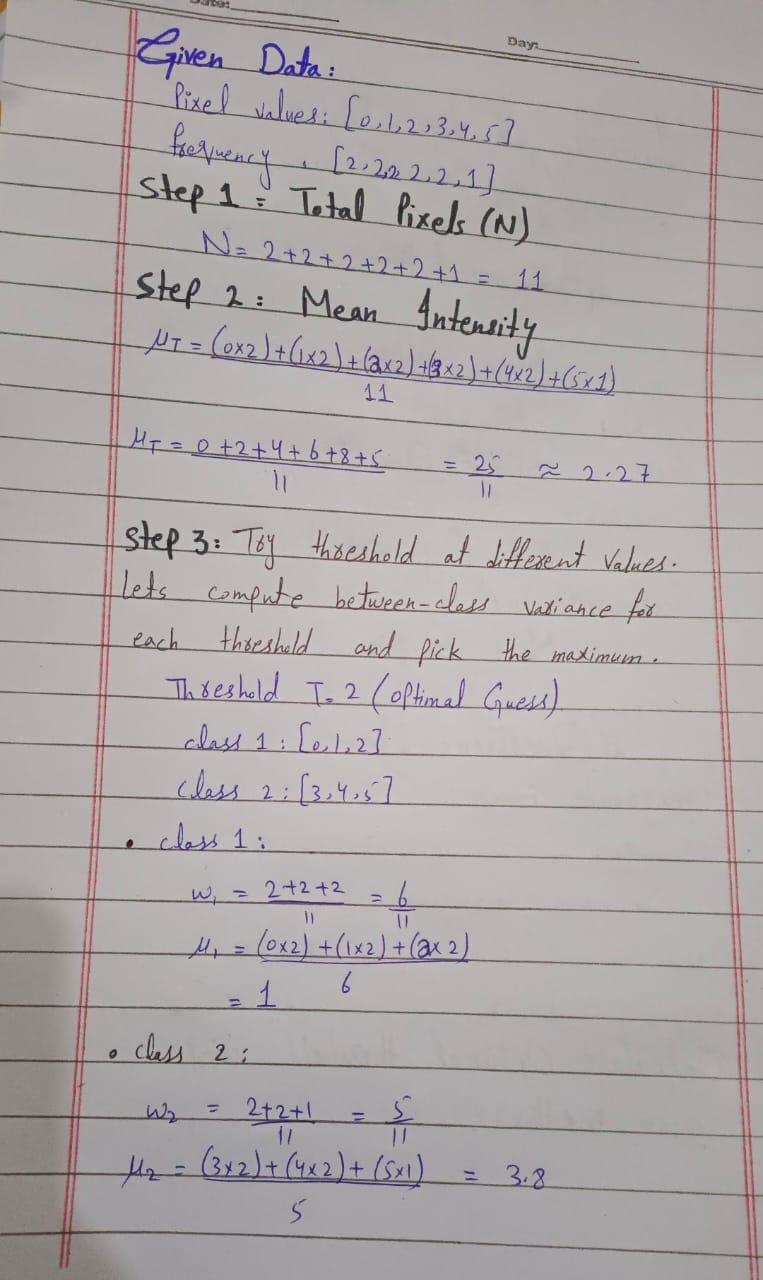 Date:
Day:
Given Data:
Pixel values: [0,1,2,3,4,5]
frequency : [2,2,2,2,2,1]
Step 1 : Total Pixels (N)
N = 2+2+2+2+2+1 = 11
Step 2: Mean Intensity
μT = (0x2)+(1x2)+(2x2)+(3x2)+(4x2)+(5x1)
11
μT = 0+2+4+6+8+5 = 25 ≈ 2.27
11 11
Step 3: Try threshold at different Values.
Lets compute between-class variance for
each threshold and pick the maximum.
Threshold T = 2 (optimal Guess)
class 1 : [0,1,2]
Class 2 : [3,4,5]
• class 1 :
w₁ = 2+2+2 = 6
11 11
μ₁ = (0x2)+(1x2)+(2x2)
6
= 1
• class 2 :
w₂ = 2+2+1 = 5
11 11
μ₂ = (3x2)+(4x2)+(5x1) = 3.8
5